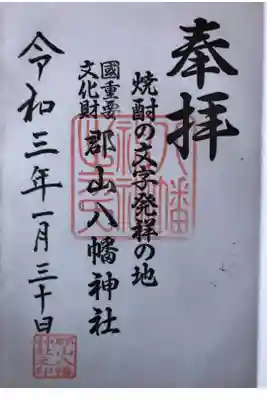 奉拝
焼酎の文字発祥の地
國重要
文化財
郡山八幡神社
令和三年一月三十日